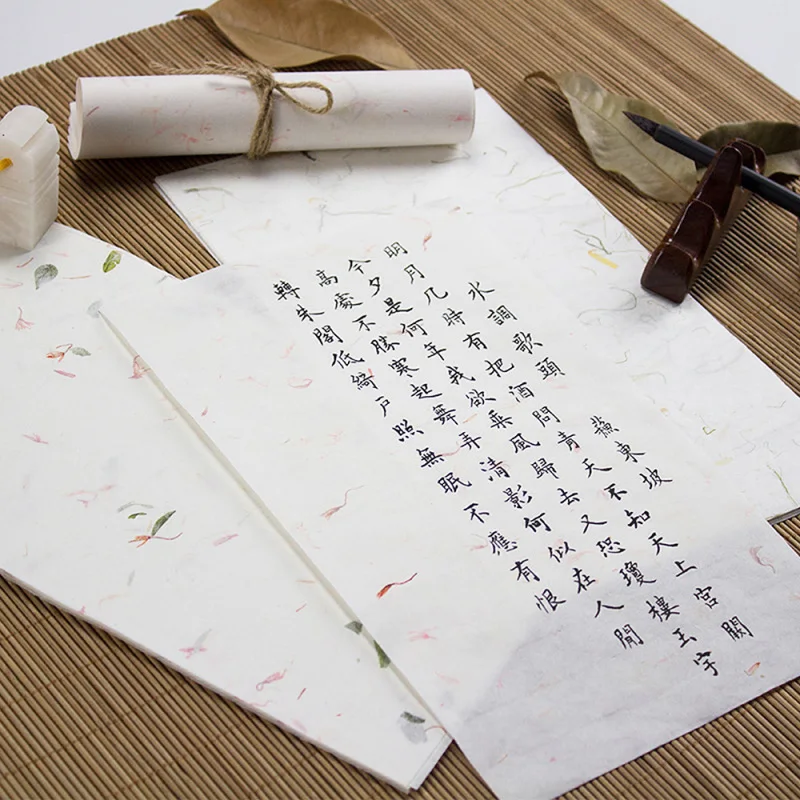 水調歌頭 蘇東坡
明月几時有把酒問青天不知天上宮闕
今夕是何年我欲乘風歸去又恐瓊樓玉宇
高處不勝寒起舞弄清影何似在人閒
轉朱閣低綺戶照無眠不應有恨